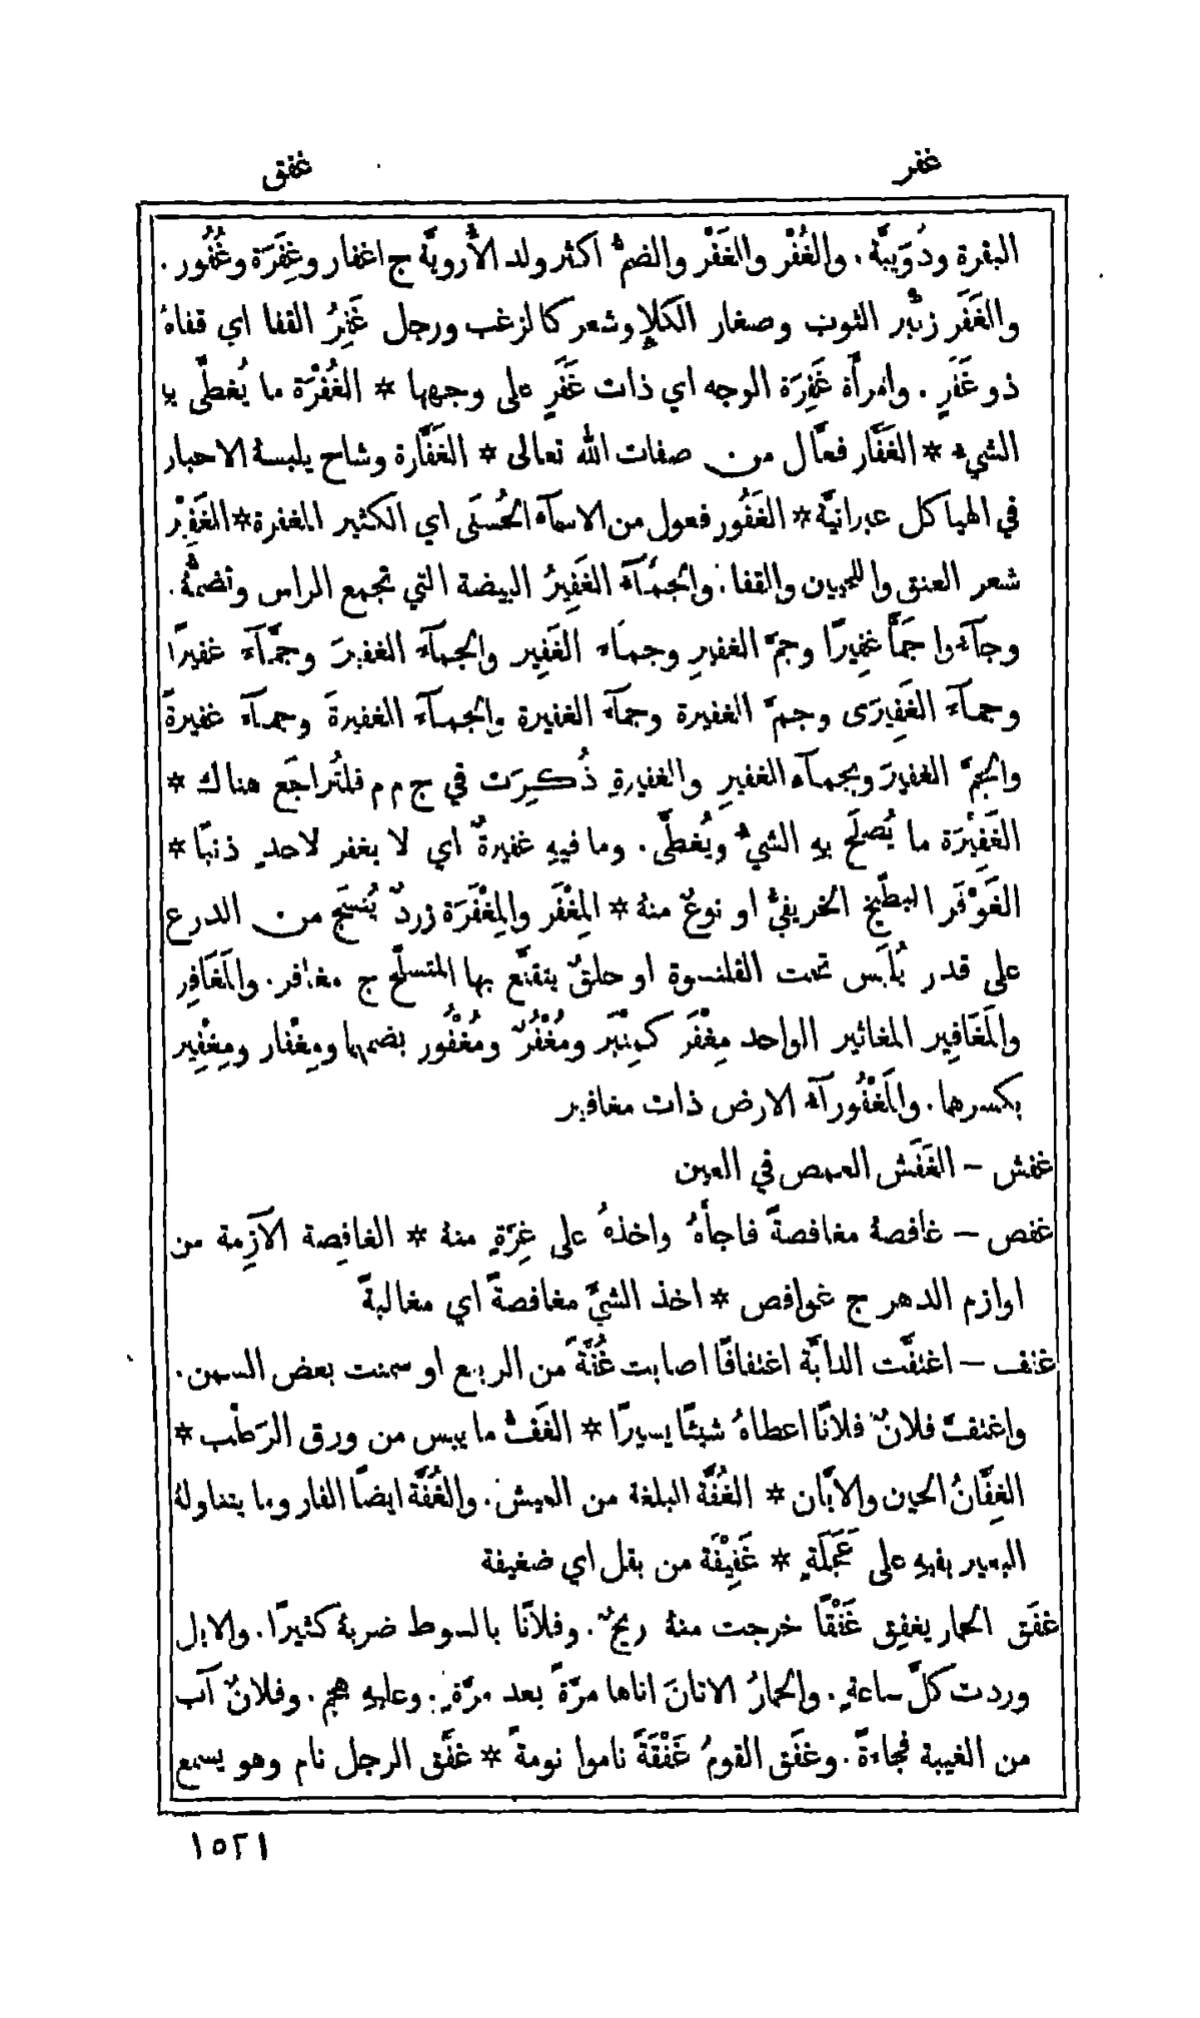 غفر
غفق
البقرة ودُوَيبَّة. والغُفْر والغَفْر والضمُّ اكثر ولد الأُرويَّة ج اغفار وغِفَرَة وغُفُور.
والغَفَر زِئْبِر الثوب وصغار الكلإِ وشعر كالزغب ورجل غَفِرُ القفا اي قفاهُ
ذو غَفَرٍ. وامرأَة غَفِرَة الوجه اي ذات غَفَرٍ على وجهها * الغُفْرَة ما يُغطَّى بهِ
الشيء * الغَفَّار فعَّال من صفات الله تعالى * الغَفَّارة وشاح يلبسهُ الاحبار
في الهياكل عبرانيَّة * الغَفُور فعول من الاسمآء الحُسنَى اي الكثير المغفرة * الغَفِيْر
شعر العنق واللحيين والقفا. والجَمَّآءُ الغَفِيرُ البيضة التي تجمع الراس وتضمُّهُ.
وجآءُوا جَمًّا غفِيرًا وجمَّ الغفيرِ وجمآء الغَفِير والجمآءَ الغفيرَ وجمَّآءَ غفيرًا
وجمآءَ الغَفِيرَى وجمَّ الغفيرة وجمآءَ الغفيرة والجمآءَ الغفيرةَ وجمآءَ غفيرةً
والجمَّ الغفيرَ وبجمآء الغفيرِ والغفيرةِ ذُكِرَت في ج م م فلتُراجَع هناك *
الغَفِيْرَة ما يُصلَح بهِ الشيءُ ويُغطَّى. وما فيهِ غفيرةٌ اي لا يغفر لاحدٍ ذنبًا *
الغَوْفَر البطّيخ الخريفيُّ او نوعٌ منهُ * المِغْفَر والمِغْفَرَة زردٌ يُنسَج من الدرع
على قدر يُلبَس تحت القلنسوة او حلقٌ يتقنَّع بها المتسلّح ج مغافر. والمَغَافِر
والمَغَافِير المغاثير الواحد مِغْفَر كمِنْبَر ومُغْفُرٌ ومُغْفُور بضمهما ومِغْفار ومِغْفِير
بكسرهما. والمَغْفُورآءُ الارض ذات مغافير
غفش – الغَفَش العمص في العين
غفص – غافصهُ مغافصةً فاجأَهُ واخذهُ على غِرَّةٍ منهُ * الغافِصة الآزِمة من
اوازم الدهر ج غوافص * اخذ الشيءَ مغافصةً اي مغالبةً
غفف – اغتفَّت الدابَّة اغتفافًا اصابت غُفَّةً من الربيع او سمنت بعض السمن.
واغتفَّ فلانٌ فلانًا اعطاهُ شيئًا يسيرًا * الغَفُّ ما يبس من ورق الرَطْب *
الغِفَّانُ الحين والابَّان * الغُفَّة البلغة من العيش. والغُفَّة ايضًا الفار وما يتناولهُ
البعير بفيهِ على عَجَلَةٍ * غَفِيْفَة من بقل اي ضغيفة
غفَق الحمار يغفِق غَفْقًا خرجت منهُ ريحٌ. وفلانًا بالسوط ضربهُ كثيرًا. والابل
وردت كلَّ ساعةٍ. والحمارُ الاتانَ اتاها مرَّةً بعد مرَّةٍ. وعليهِ هجم. وفلانٌ آب
من الغيبة فُجاءةً. وغفَق القومُ غَفْقَةً ناموا نومةً * غفَّق الرجل نام وهو يسمع
١٥٢١